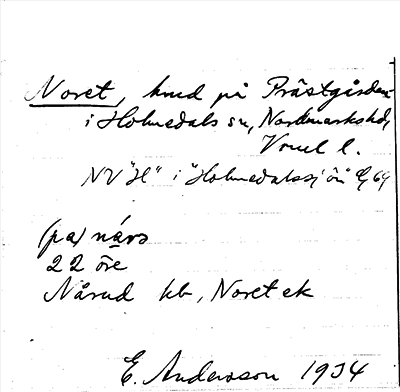 Noret, hmd på Prästgården
i Holmedals sn, Nordmarks hd,
Vrml l.
NV "H" i "Holmedalssjön" Ek 69
(pa) nárs
22 öre
Nårud hb, Noret ek
E. Andersson 1934